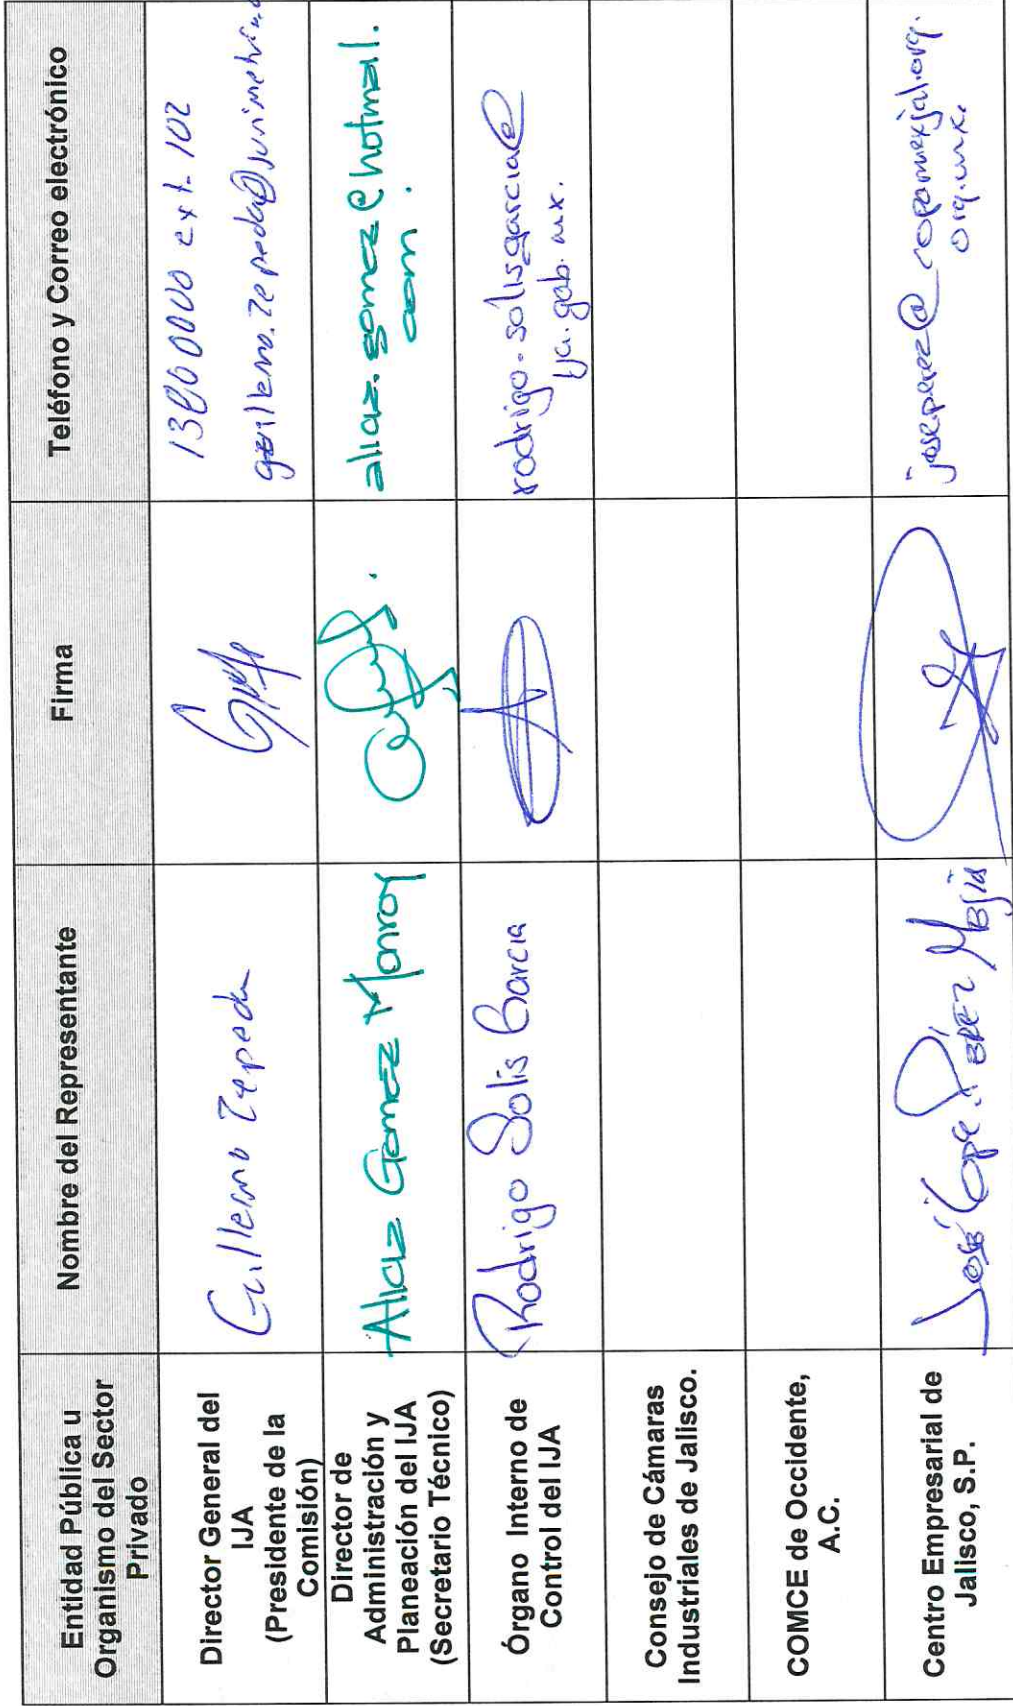 Entidad Pública u
Organismo del Sector
Privado
Nombre del Representante
Firma
Teléfono y Correo electrónico
Director General del
IJA
(Presidente de la
Comisión)
Guillermo Zepeda
ext. 102
Director de
Administración y
Planeación del IJA
(Secretario Técnico)
Gomez Monroy
Órgano Interno de
Control del IJA
Rodrigo Solis Garcia
rodrigo.solisgarcia@
ija.gob.mx.
Consejo de Cámaras
Industriales de Jalisco.
COMCE de Occidente,
A.C.
Centro Empresarial de
Jalisco, S.P.
José Pérez Mejía
org.mx.